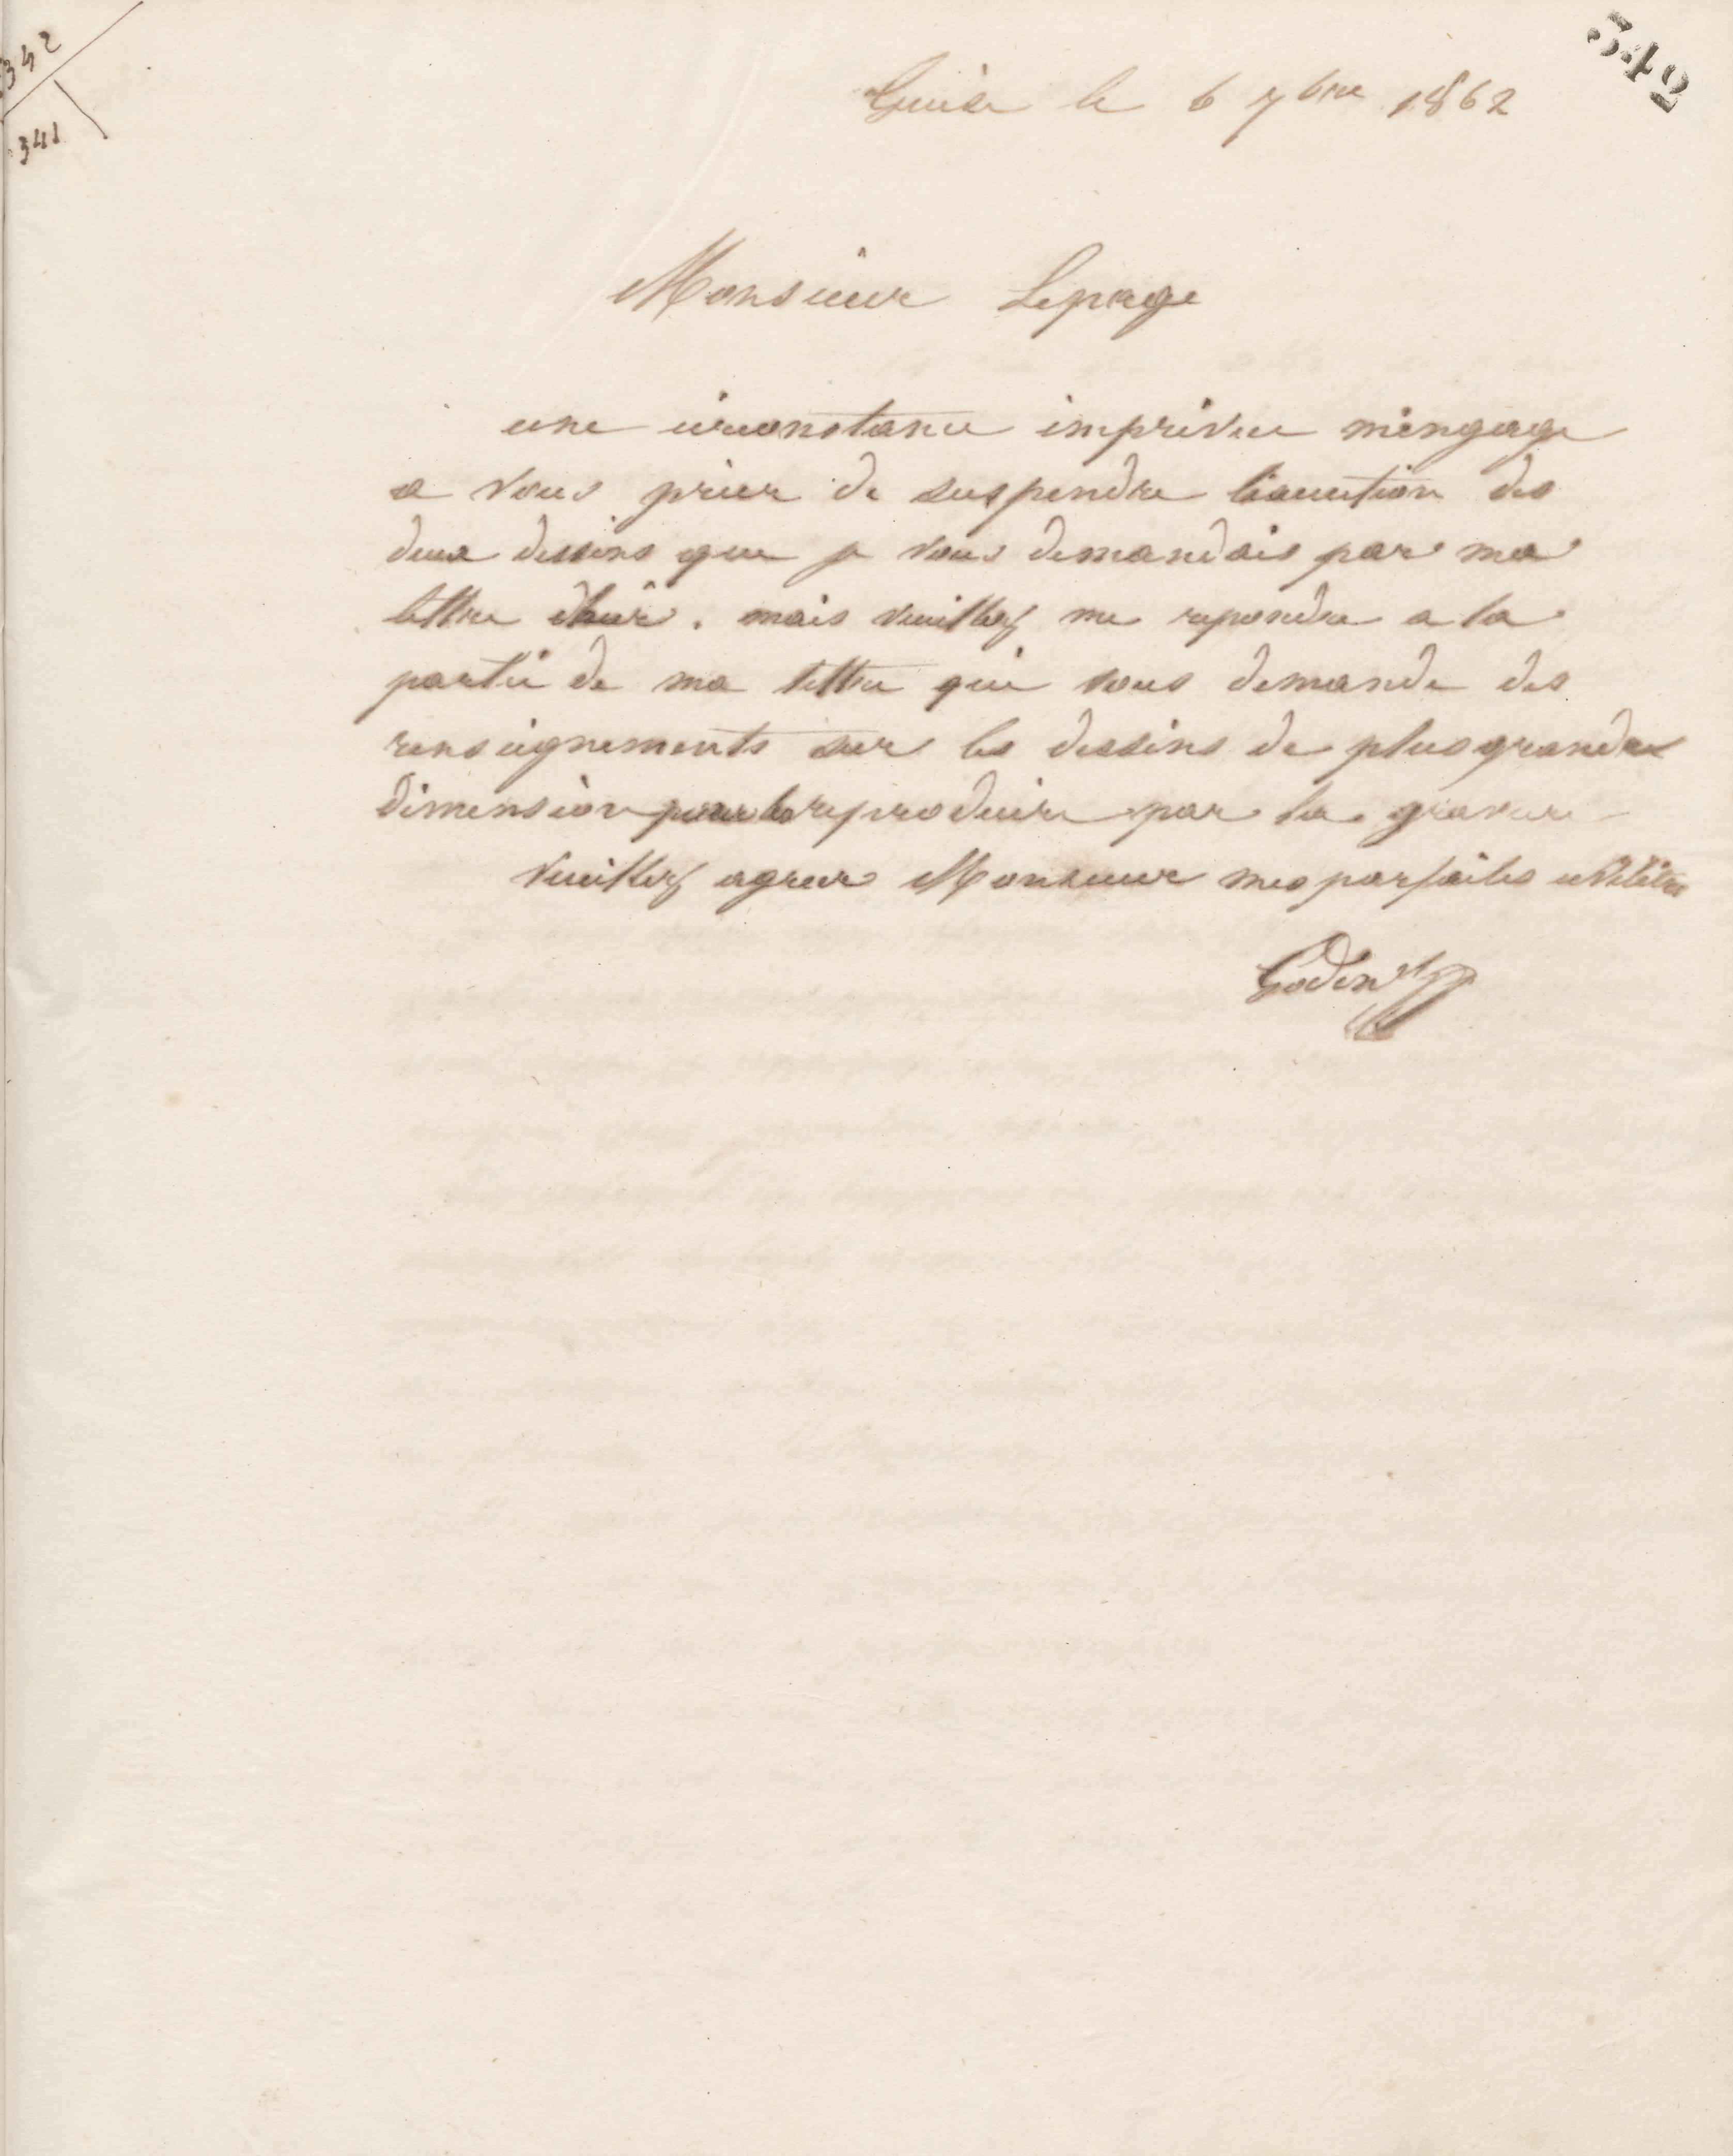 342
341
342
Guise le 6 7bre 1862
Monsieur Lepage
une circonstance imprévue m'engage
a vous prier de suspendre l'exécution des
deux dessins que je vous demandais par ma
lettre d'hier. mais veuillez me repondre a la
partie de ma lettre qui vous demande des
renseignements sur les dessins de plus grandes
dimension pour les reproduire par la gravure
Veuillez agreer Monsieur mes parfaites civilités
Godin